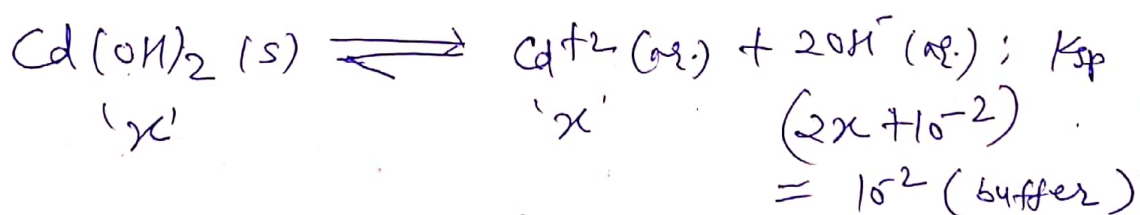 Cd(OH)₂ (s) ⇌ Cd⁺² (aq.) + 2OH⁻ (aq.) ; Ksp
'x' 'x' (2x + 10⁻²)
= 10⁻² (buffer)